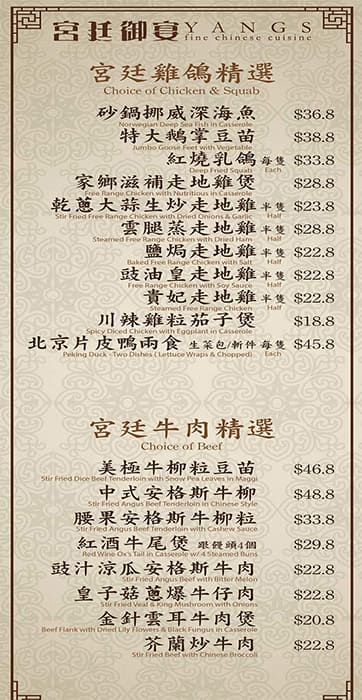 宮廷御宴 YANGS
fine chinese cuisine
宮廷雞鴿精選
Choice of Chicken & Squab
砂鍋挪威深海魚 $36.8
Norwegian Deep Sea Fish in Casserole
特大鵝掌豆苗 $38.8
Jumbo Goose Feet with Vegetable
紅燒乳鴿 每隻 $33.8
Deep Fried Squab Each
家鄉滋補走地雞煲 $28.8
Free Range Chicken with Nutritious in Casserole
乾蔥大蒜生炒走地雞 半隻 $23.8
Stir Fried Free Range Chicken with Dried Onions & Garlic Half
雲腿蒸走地雞 半隻 $28.8
Steamed Free Range Chicken with Dried Ham Half
鹽焗走地雞 半隻 $22.8
Baked Free Range Chicken with Salt Half
豉油皇走地雞 半隻 $22.8
Free Range Chicken with Soy Sauce Half
貴妃走地雞 半隻 $22.8
Steamed Free Range Chicken Half
川辣雞粒茄子煲 $18.8
Spicy Diced Chicken with Eggplant in Casserole
北京片皮鴨兩食 生菜包/斬件 每隻 $45.8
Peking Duck - Two Dishes ( Lettuce Wraps & Chopped) Each
宮廷牛肉精選
Choice of Beef
美極牛柳粒豆苗 $46.8
Stir Fried Dice Beef Tenderloin with Snow Pea Leaves in Maggi
中式安格斯牛柳 $48.8
Stir Fried Angus Beef Tenderloin in Chinese Style
腰果安格斯牛柳粒 $33.8
Stir Fried Angus Beef Tenderloin with Cashew Sauce
紅酒牛尾煲 跟饅頭4個 $29.8
Red Wine Ox's Tail in Casserole w/ 4 Steamed Buns
豉汁涼瓜安格斯牛肉 $22.8
Stir Fried Angus Beef with Bitter Melon
皇子菇蔥爆牛仔肉 $22.8
Stir Fried Veal & King Mushroom with Onions
金針雲耳牛肉煲 $20.8
Beef Flank with Dried Lily Flowers & Black Fungus in Casserole
芥蘭炒牛肉 $22.8
Stir Fried Beef with Chinese Broccoli